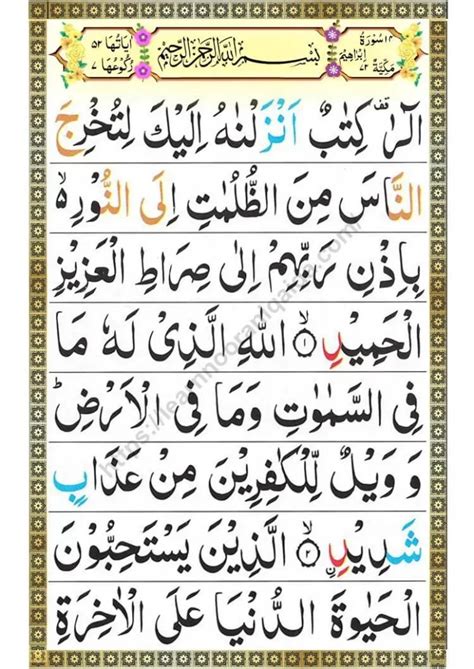 ۱۴ سُوْرَةُ اِبْرٰهِيْمَ مَكِّيَّةٌ ۷۲
بِسْمِ اللّٰهِ الرَّحْمٰنِ الرَّحِيْمِ
اٰيَاتُهَا ۵۲ رُكُوْعُهَا ۷
الٓرٰ قف كِتٰبٌ اَنْزَلْنٰهُ اِلَيْكَ لِتُخْرِجَ
النَّاسَ مِنَ الظُّلُمٰتِ اِلَى النُّوْرِ ۵ۙ
بِاِذْنِ رَبِّهِمْ اِلٰى صِرَاطِ الْعَزِيْزِ
الْحَمِيْدِ ۱ۙ اللّٰهِ الَّذِىْ لَهٗ مَا
فِى السَّمٰوٰتِ وَمَا فِى الْاَرْضِ ؕ
وَ وَيْلٌ لِّلْكٰفِرِيْنَ مِنْ عَذَابٍ
شَدِيْدِ ۲ۙ ۨ الَّذِيْنَ يَسْتَحِبُّوْنَ
الْحَيٰوةَ الدُّنْيَا عَلَى الْاٰخِرَةِ